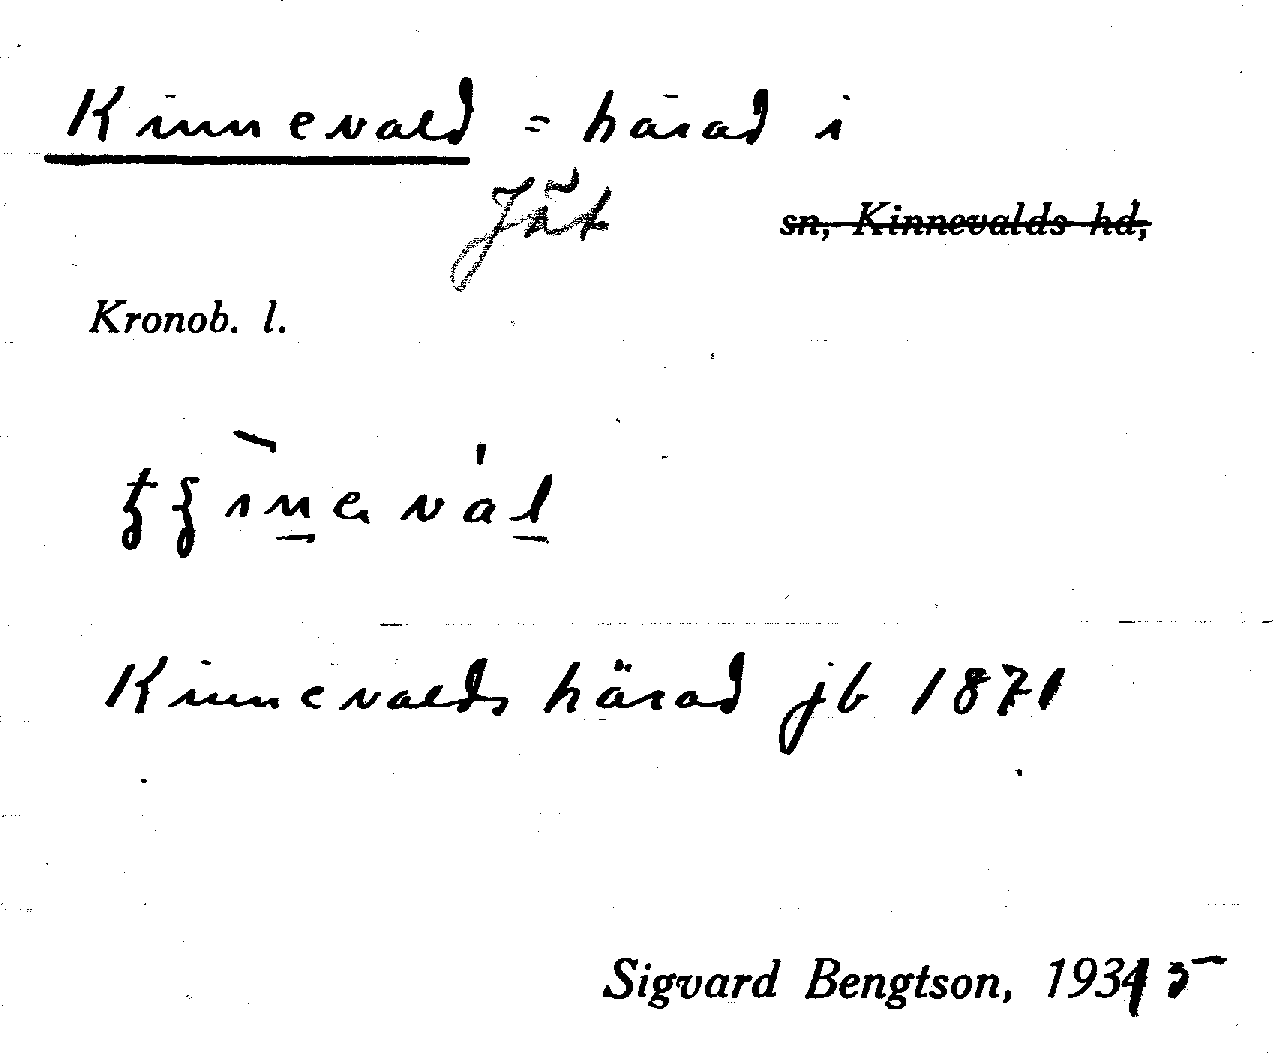 Kinnevald = härad i
Jät sn, Kinnevalds hd,
Kronob. l.
Kinnevalds härad jb 1871
Sigvard Bengtson, 1935